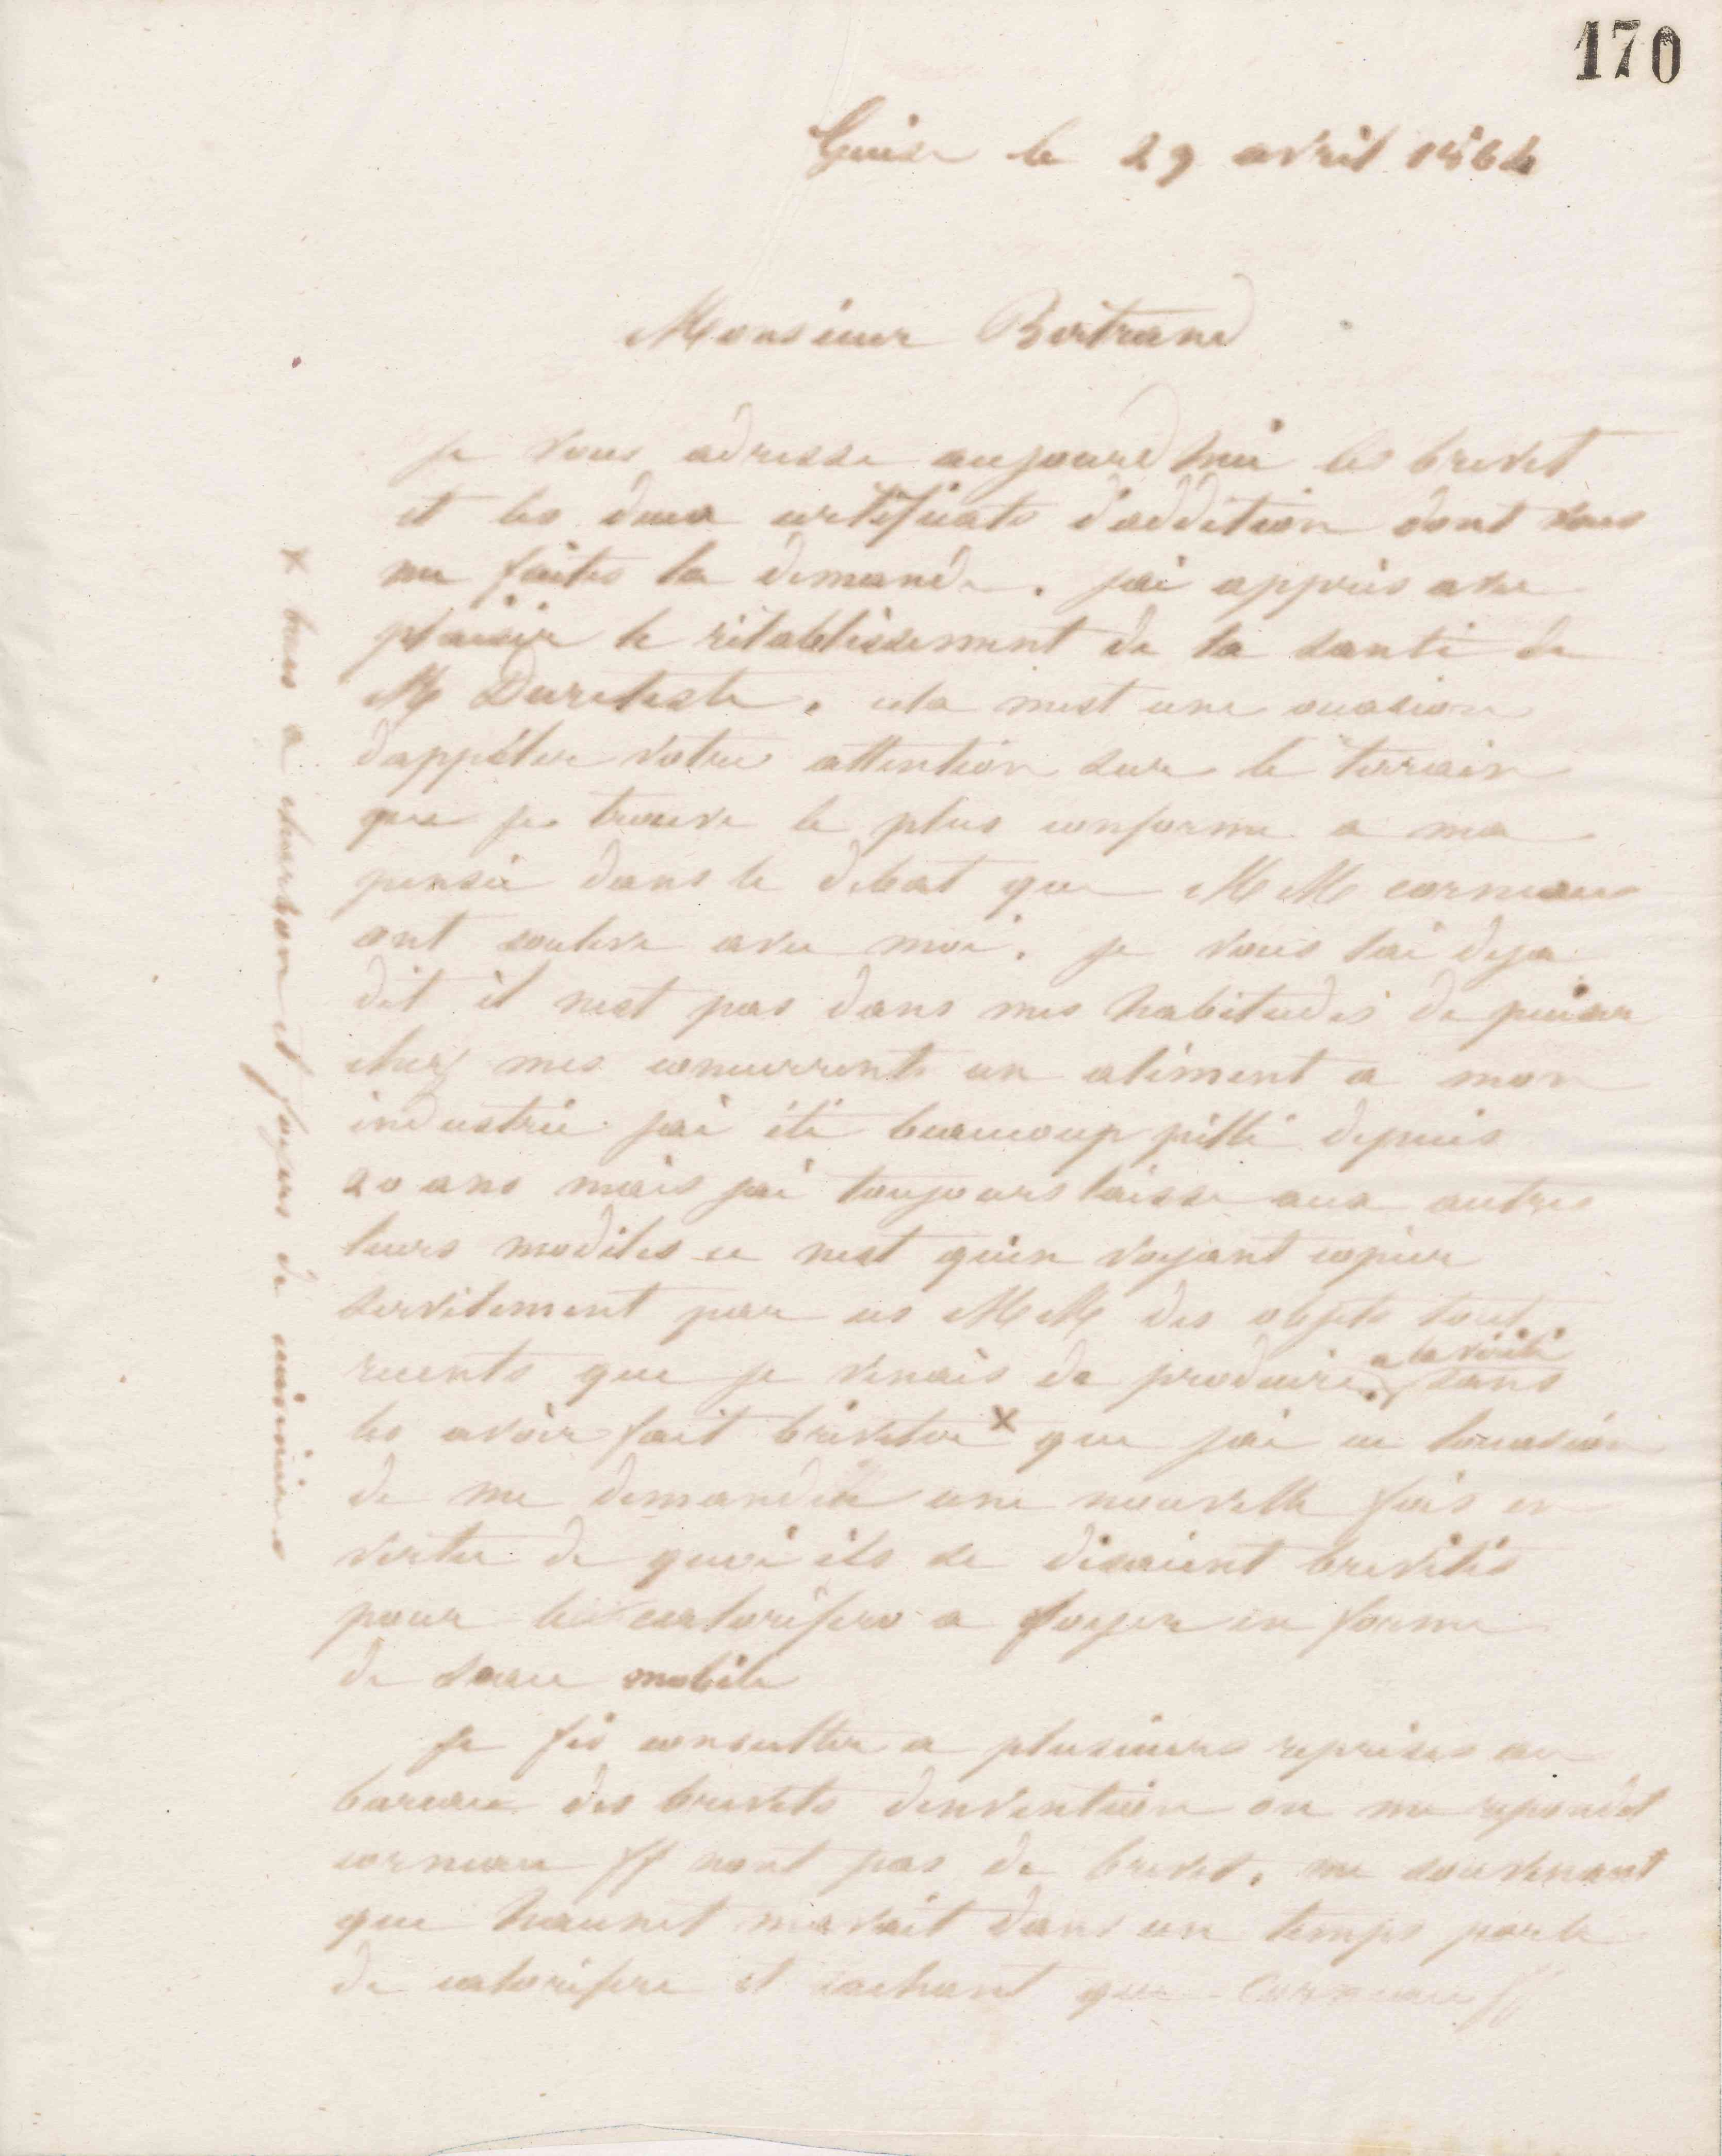 170
Guise le 29 avril 1864
Monsieur Bertrand
Je vous adresse aujourdhui les brevet
et les deux certificats d'addition dont vous
me faites la demande. jai appris avec
plaisir le rétablissement de la santé de
Mr Dureteste. cela mest une occasion
dappeler votre attention sur le terrain
que je trouve le plus conforme a ma
pensée dans le debat que MM corneau
ont soulevé avec moi. je vous lai deja
dit il nest pas dans mes habitudes de puiser
chez mes concurrents un aliment a mon
industrie jai été beaucoup pillé depuis
20 ans mais jai toujours laissé aux autres
leurs modèles ce nest quen voyant copier
servilement par ces MM des objets tout
recents que je venais de produire a la vérité sans
les avoir fait breveter x que jai eu loccasion
de me demander une nouvelle fois en
vertu de quoi ils se disaient brevetés
pour le calorifère a foyer en forme
de vase mobile
Je fis consulter a plusieurs reprises au
bureau des brevets dinvention on me repondit
corneau ff nont pas de brevet. me souvenant
que hauret mavait dans un temps parlé
de calorifère et sachant que Corneau ff
x bacs a charbon et foyers de cuisinières